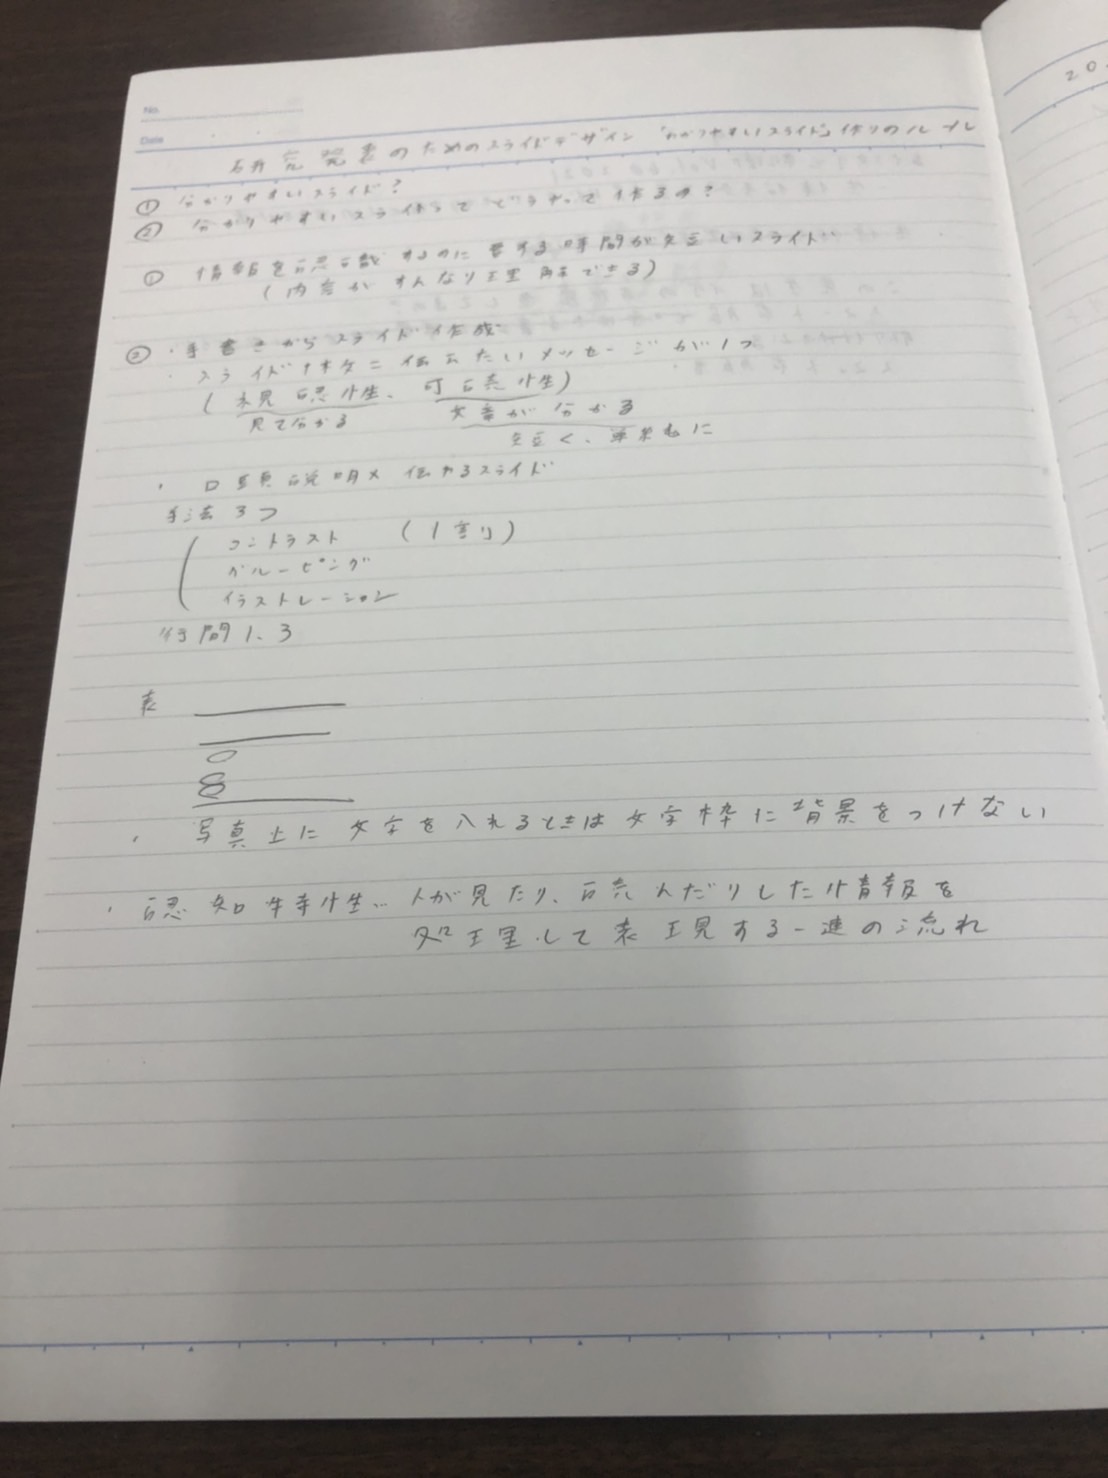 No.
Date
研究発表のためのスライドデザイン 「わかりやすいスライド」作りのルール
① 分かりやすいスライド?
② 分かりやすいスライドってどうやって作るの?
① 情報を認識するのに要する時間が短いスライド
(内容がすんなり理解できる)
② ・手書きからスライド作成
・スライド1枚に伝えたいメッセージが1つ
(視認性、可読性)
見て分かる 文章が分かる
短く、単純に
・口頭説明× 伝わるスライド
手法3つ
コントラスト (1割)
グルーピング
イラストレーション
行間1.3
表
・写真上に文字を入れるときは文字枠に背景をつけない
・認知特性… 人が見たり、読んだりした情報を
処理して表現する一連の流れ
20